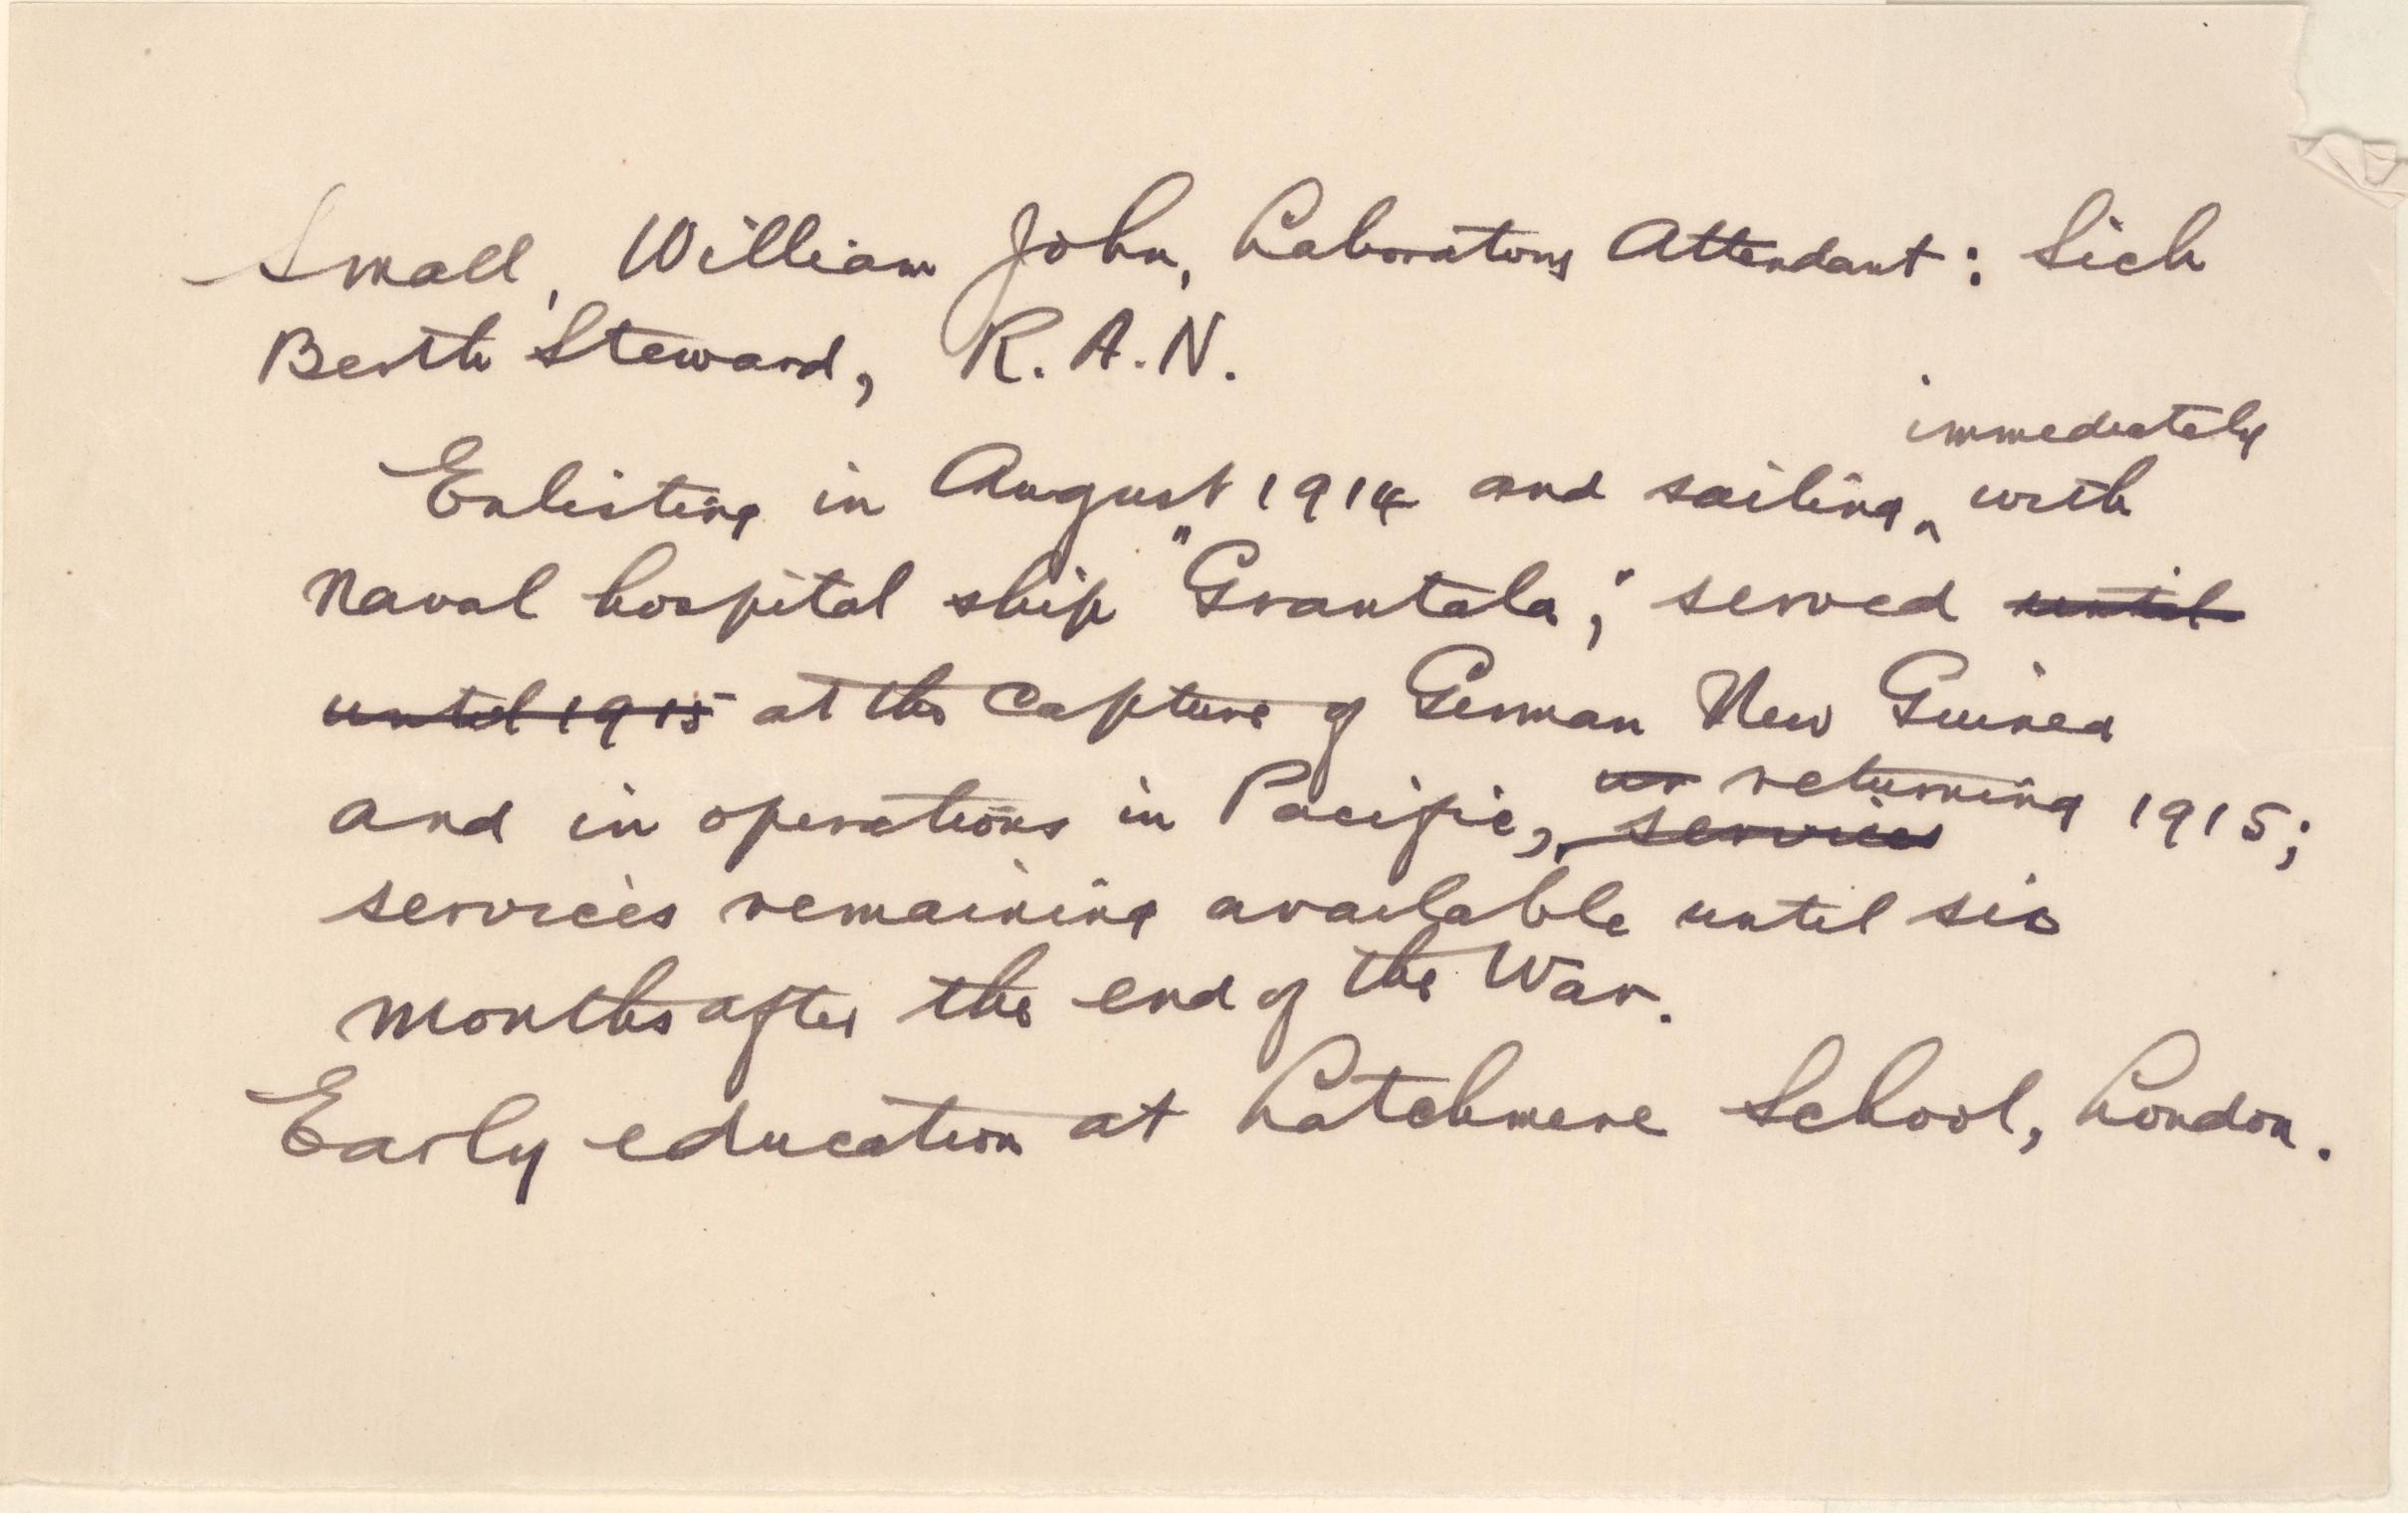 Small, William John, Laboratory Attendant: Sick
Berth Steward, R.A.N.
immediately
Enlisting in August 1914 and sailing ‸ with
Naval hospital ship "Grantala," served until
until 1915 at the capture of German New Guinea
and in operations in Pacific, returning 1915;
services
services remaining available until six
months after the end of the War.
Early education at Latchmere School, London.